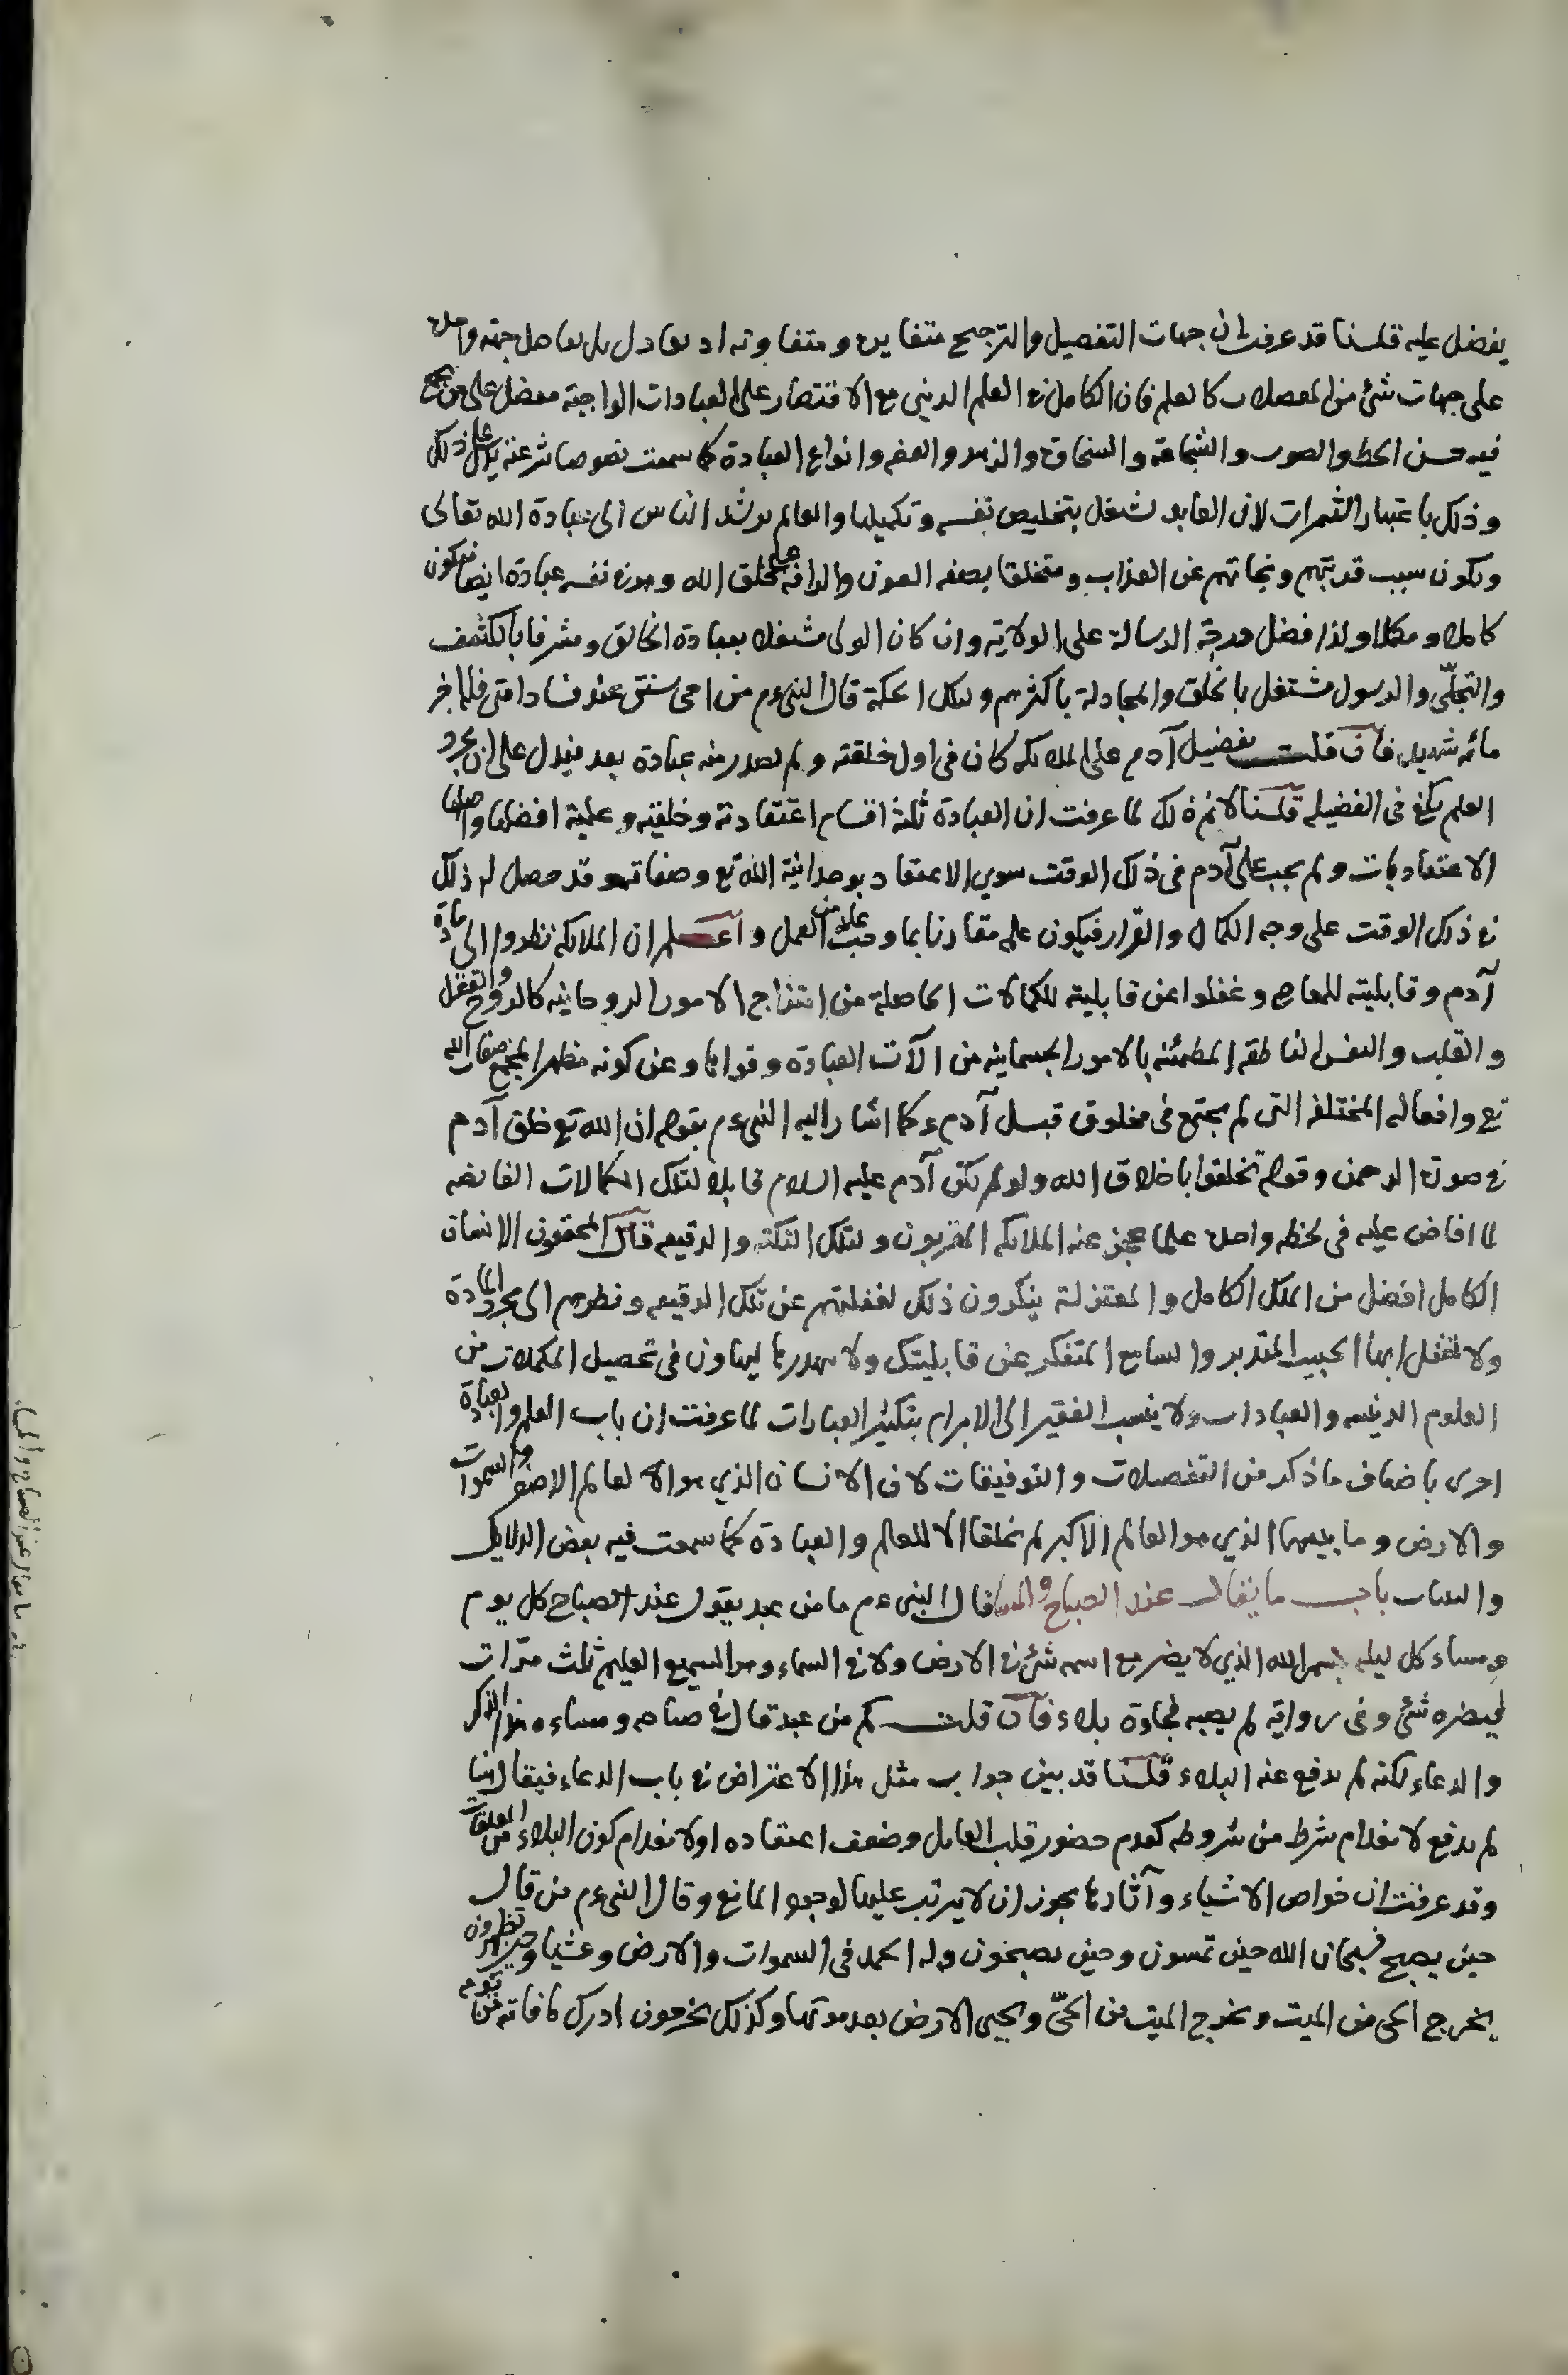 يفضل عليه قلنا قد عرفت ان جهات التفضيل والترجيح متغايرة ومتفاوتة اذ يعادل بل يفاضل جهة واحدة
على جهات شئ من المفضلات كالعلم فان الكامل في العلم الديني مع الاقتصار على العبادات الواجبة مفضل على من جمع
فيه حسن الخط والصوت والشجاعة والسخاوة والزهد والعفة وانواع العبادة كما سمعت نصوصا شرعية يدل على ذلك
وذلك باعتبار الثمرات لان العابد يشتغل بتخليص نفسه وتكميلها والعالم يرشد الناس الى عبادة الله تعالى
ويكون سبب قربتهم ونجاتهم عن العذاب ومتخلقا بصفة العون والرافة على خلق الله وهو في نفسه عبادة ايضا فيكون
كاملا ومكملا ولذا فضل درجة الرسالة على الولاية وان كان الولى مشتغلا بعبادة الخالق ومشرفا بالكشف
والتجلّي والرسول مشتغل بالخلق والمجادلة باكثرهم ولتلك الحكمة قال النبي ءم من احى سنتى عند فساد امتى فله اجر
مائة شهيد فان قلت تفضيل آدم على الملائكة كان في اول خلقته ولم يصدر منه عبادة بعد فيدل على ان مجرد
العلم يكفي في الفضيلة قلنا لانم ذلك لما عرفت ان العبادة ثلثة اقسام اعتقادية وخلقية وعملية افضلها واصلها
الاعتقاديات ولم يجب على آدم في ذلك الوقت سوى الاعتقاد بوحدانية الله تع وصفاته وقد حصل له ذلك
في ذلك الوقت على وجه الكمال والقرار فيكون علمه مقارنا بما وجب عليه من العمل واعلم ان الملائكة نظروا الى مادة
آدم وقابليته للمعاصى وغفلوا عن قابليته للكمالات الحاصلة من امتزاج الامور الروحانية كالروح والعقل
والقلب والنفس الناطقة المطمئنة بالامور الجسمانية من الآت العبادة وقواها وعن كونه مظهرا لجميع صفات الله
تع وافعاله المختلفة التى لم يجتمع في مخلوق قبل آدم ء كما اشار اليه النبي ءم بقوله ان الله تع خلق آدم
في صورة الرحمن وقوله تخلقوا باخلاق الله ولو لم يكن آدم عليه السلام قابلا لتلك الكمالات الفائضة
لما افاض عليه في لحظة واحدة علما عجز عنه الملائكة المقربون ولتلك النكتة والدقيقة قال المحققون الانسان
الكامل افضل من الملك الكامل والمعتزلة ينكرون ذلك لغفلتهم عن تلك الدقيقة ونظرهم الى مجرد المادة
ولا تغفل ايها الحبيب المتدبر والسامع المتفكر عن قابليتك ولا تهدرها لتهاون في تحصيل المكملات من
العلوم الدينية والعبادات ولا ينسب الفقير الى الابرام بتكثير العبارات لما عرفت ان باب العلم والعبادة
احرى باضعاف ماذكر من التفصيلات والتوفيقات لان الانسان الذي هو العالم الاصغر والسموات
والارض وما بينهما الذي هو العالم الاكبر لم يخلقا الا للعلم والعبادة كما سمعت فيه بعض الدلايل
والبينات باب ما يقال عند الصباح والمساء قال النبي ءم ما من عبد يقول عند الصباح كل يوم
ومساء كل ليلة بسم الله الذي لا يضر مع اسمه شئ في الارض ولا في السماء وهو السميع العليم ثلث مرّات
لم يضره شئ وفى رواية لم يصبه فجاءة بلاء فان قلت كم من عبد قال في صباحه ومساءه هذا الذكر
والدعاء لكنه لم يدفع عنه البلاء قلنا قد بين جواب مثل هذا الاعتراض في باب الدعاء فيقال
لم يدفع لانعدام شرط من شروطه كعدم حضور قلب القايل وضعف اعتقاده او لانعدام كون البلاء من المعلقات
وقد عرفت ان خواص الاشياء وآثارها يجوز ان لا يترتب عليها لوجود المانع وقال النبي ءم من قال
حين يصبح فسبحان الله حين تمسون وحين تصبحون وله الحمد في السموات والارض وعشيا وحين تظهرون
يخرج الحى من الميت ويخرج الميت من الحيّ ويحيى الارض بعد موتها وكذلك تخرجون ادرك ما فاته من يوم